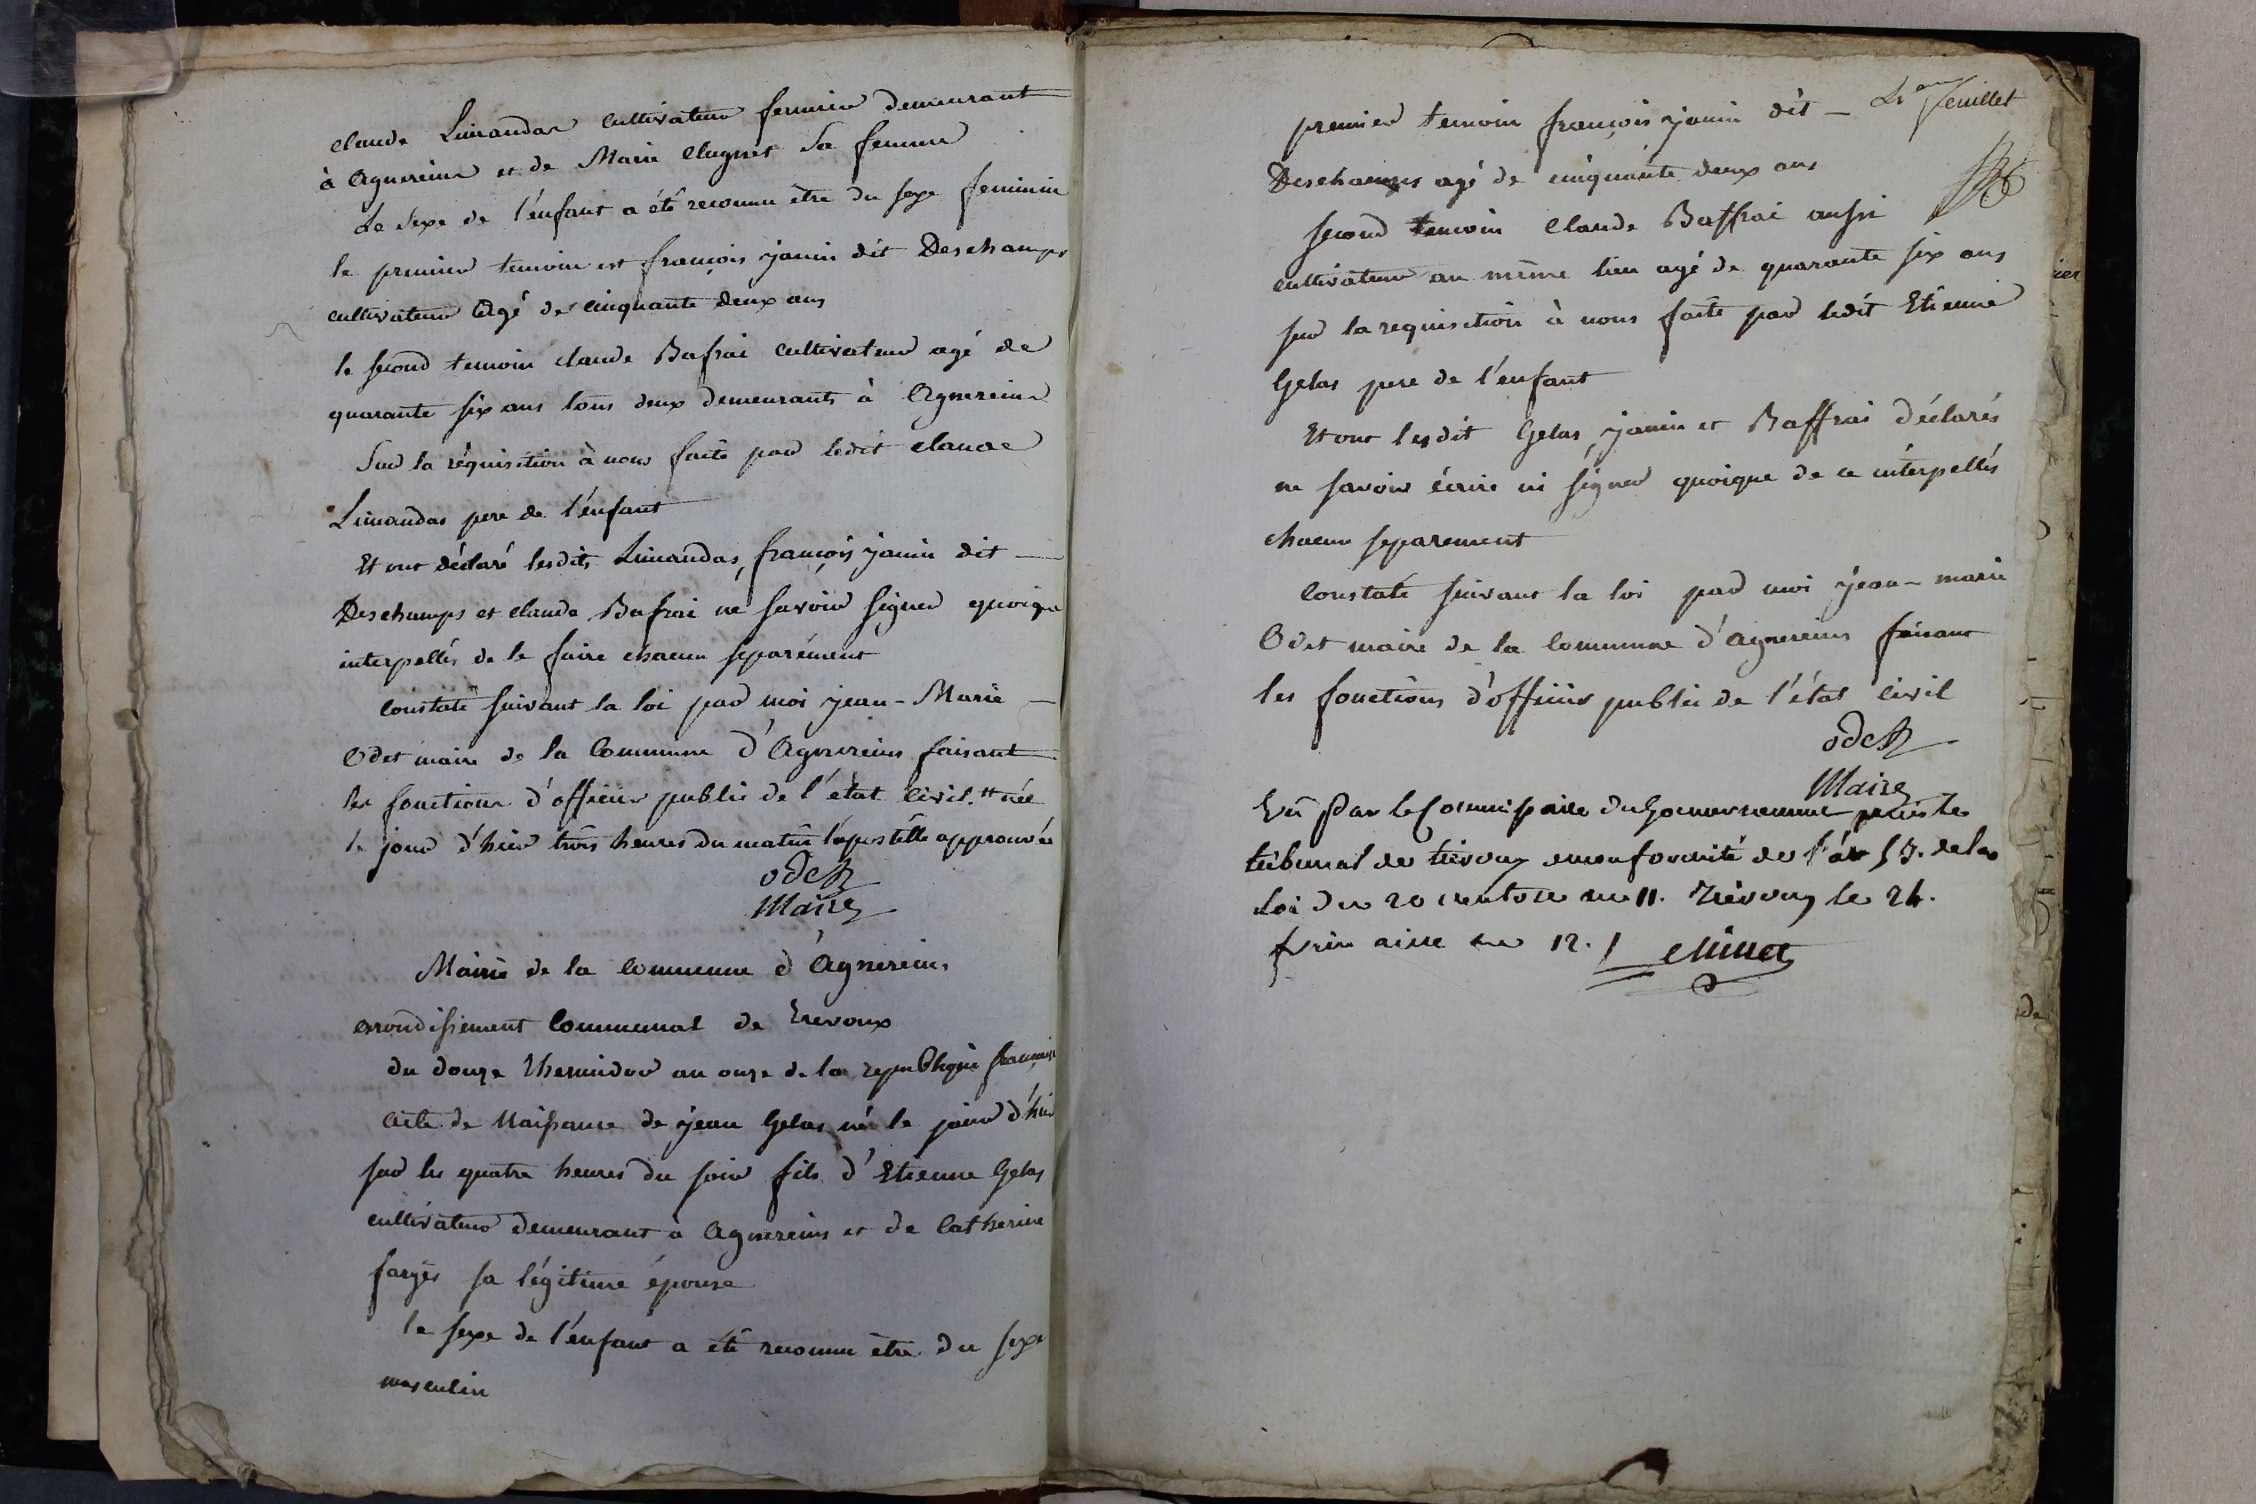 claude Limandas cultivateur fermier demeurant
à agnereins et de Marie Clugnet Sa femme
Le Sexe de l'enfant a été reconnu être du sexe feminin
le premier temoin est françois janin dit Deschamps
cultivateur agé de cinquante deux ans
le second temoin claude Bafrai cultivateur agé de
quarante six ans tous deux demeurants à agnereins
Sur la réquisition à nous faite par ledit claude
Limandas pere de l'énfant
Et ont déclaré lesdits Limandas, françois janin dit
Deschamps et claude Bafrai ne savoir signer quoique
interpellés de le faire chacun separément
constaté suivant la loi par moi jean-Marie
Odet maire de la commune d'agnereins faisant
les fonctions d'officier public de l'état civil. née
le jour d'hier trois heures du matin l'apostille approuvée
odet
Maire
Mairie de la commune d'agnereins
arrondissement communal de Trevoux
du douze thermidor an onze de la republique française
acte de Naissance de jean Gelas né le jour d'hier
sur les quatre heures du soir fils d'Etienne Gelas
cultivateur demeurant à agnereins et de Catherine
farges sa légitime épouse
le sexe de l'enfant a été reconnu être du sexe
masculin
feuillet
premier temoin françois janin dit
Deschamps agé de cinquante deux ans
second temoin claude Baffrai aussi
cultivateur au même lieu agé de quarante six ans
sur la requisition à nous faite par ledit Etienne
Gelas pere de l'enfant
Et ont lesdit Gelas, janin et Baffrai déclarés
ne savoir écrire ni signer quoique de ce interpellés
chacun separement
constaté suivant la loi par moi jean-marie
Odet maire de la commune d'agnereins faisant
les fonctions d'officier public de l'état civil
odet
Maire
Vû Par le Commissaire du Gouvernement près le
tribunal de trévoux en conformité de l'ar 15. de la
loi du 20 ventose an 11. Trévoux le 24.
frimaire an 12.